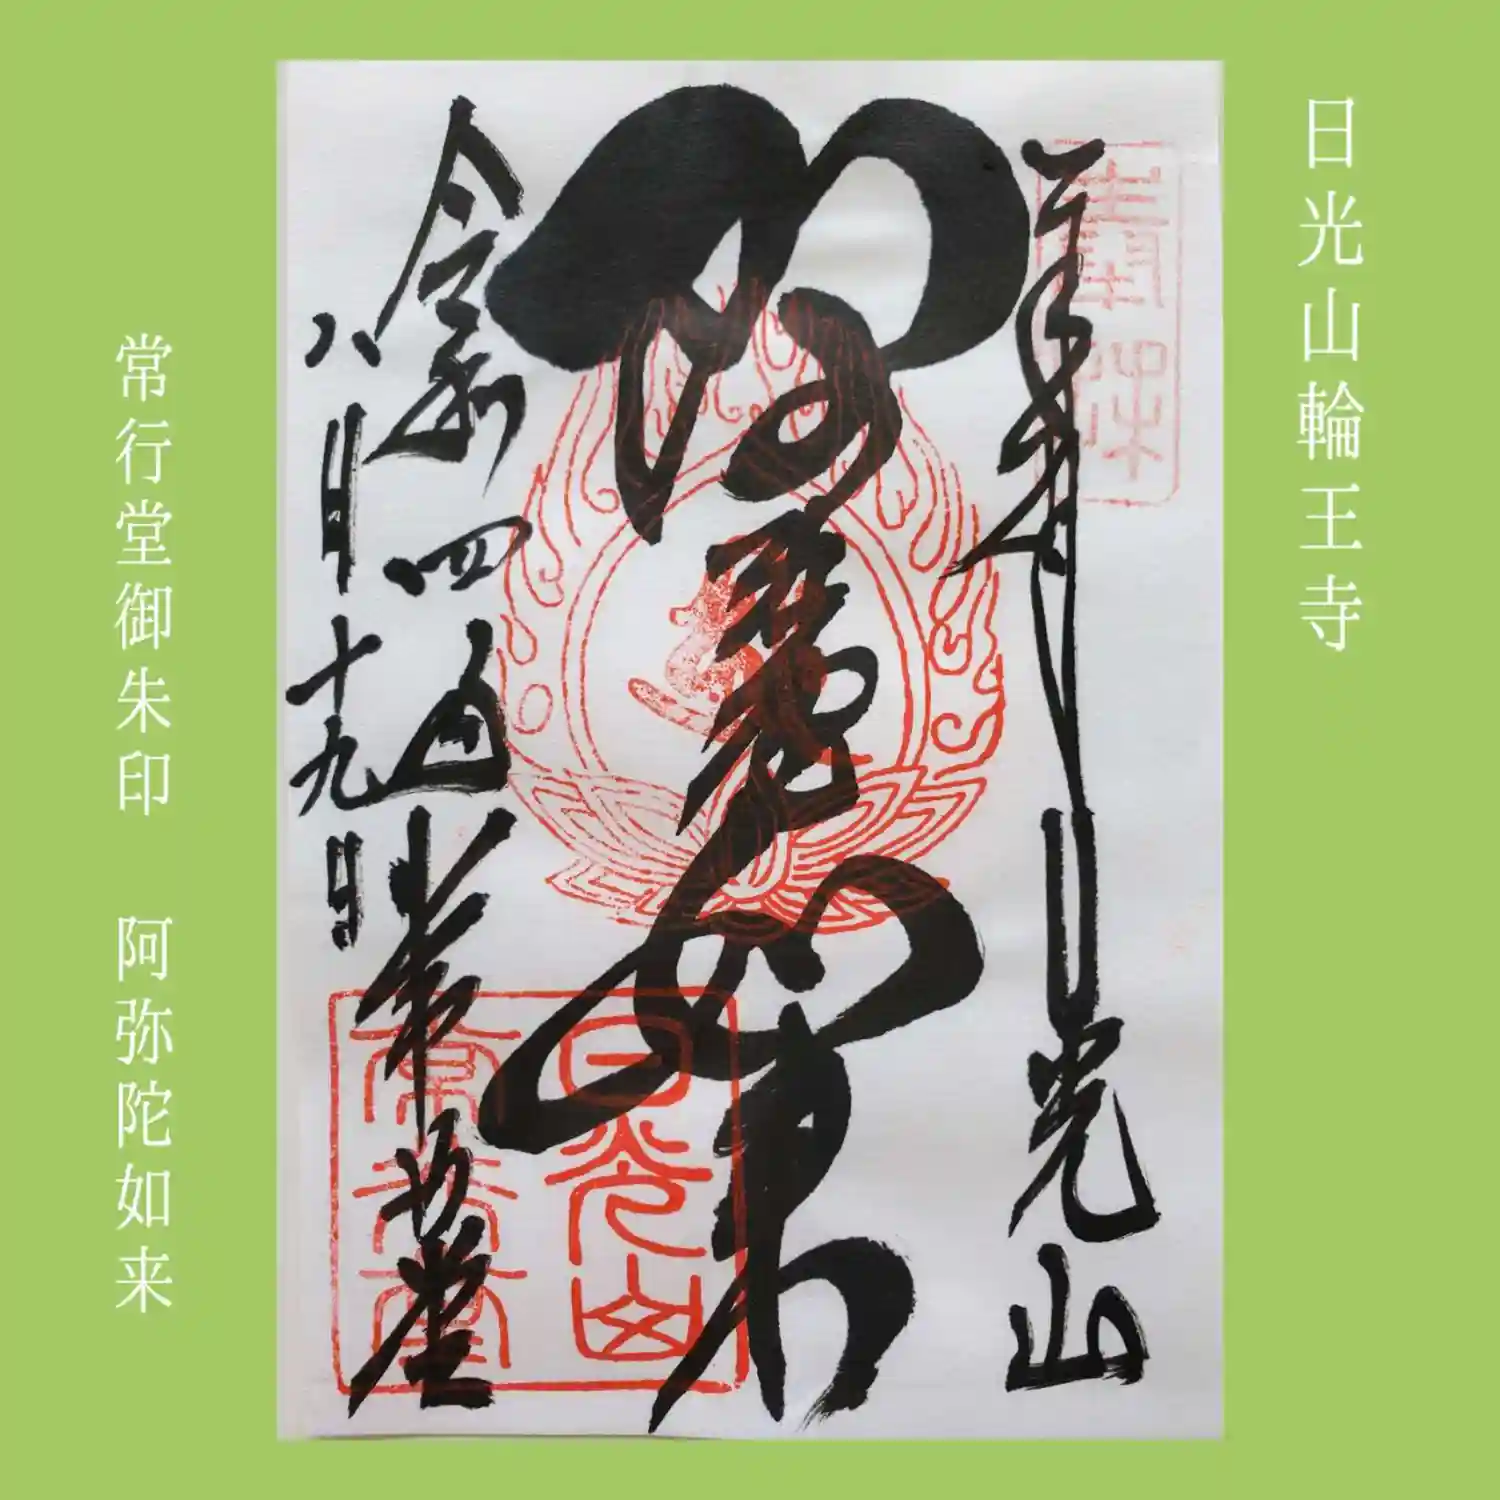 日光山輪王寺
奉拝
日光山
阿弥陀如来
令和四年
八月十九日
常行堂
日光山
常行堂
常行堂御朱印 阿弥陀如来